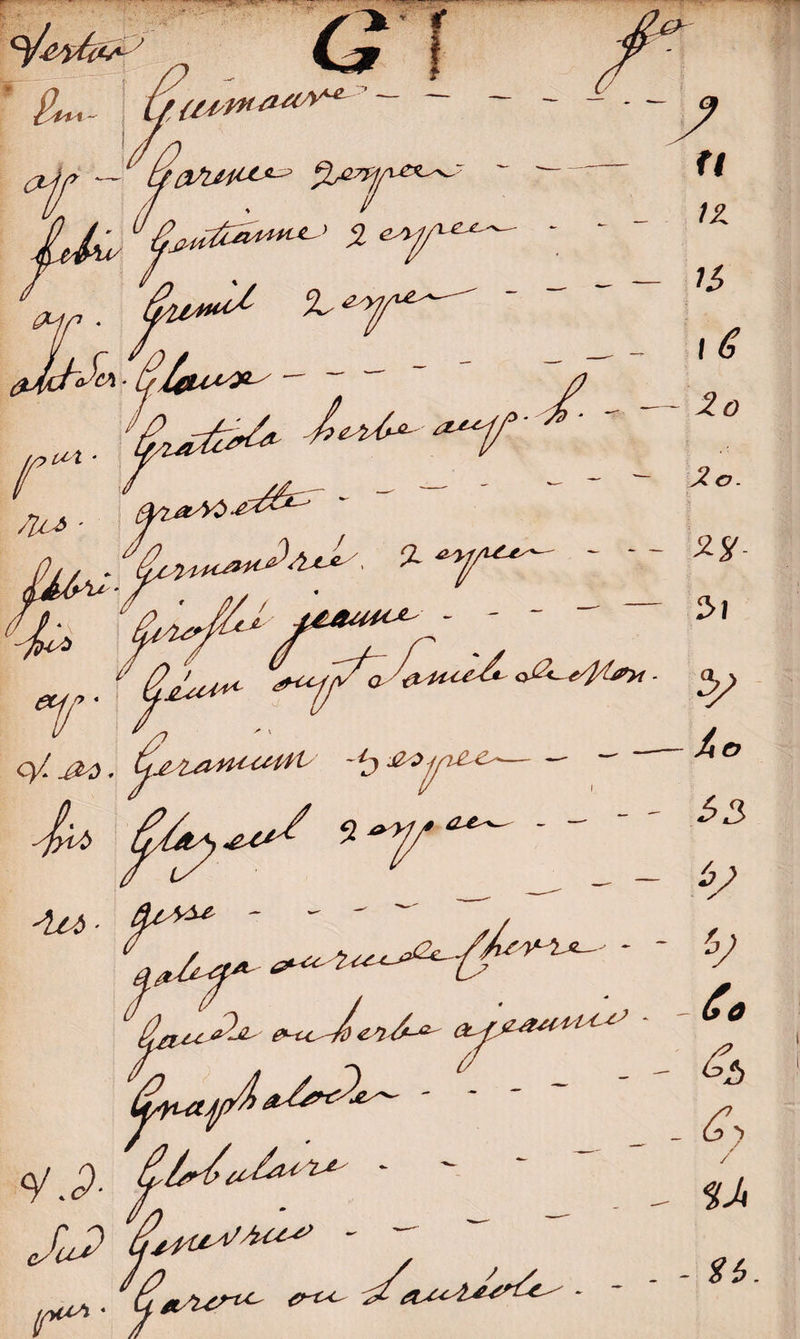 Vertus G fo.
Em- Guimauve - - - - - - 9
ap - Garence 2 espees - - - 11
febri Gentianne 2 espees - - - 12
ap. Gremil 2 espe - - - - 15
antiscr. Glaux - - - - - - - 16
pur. Gratiola herbe aup. h. - - 20
res. grassette - - - - - - - 20.
febri. Germandrée, 2 espees - - - 28.
his Giroflée jeaune - - - - - 31
ap. Géum de Mon. 37
V. as. Geranium 5 espee - - - 40
his Glayeul 2 espees - - - - 53
res. gesse - - - - - - - - 57
galega ou rue de Chevre - - 57
Gaude ou herbe a jeaunir - - 60
Gnaphalodes - - - - - - 63
V.D. Globulaire - - - - - - 67
Sud Genevrier - - - - - - 84
pur. Garou ou Lauréole - - - - 85.